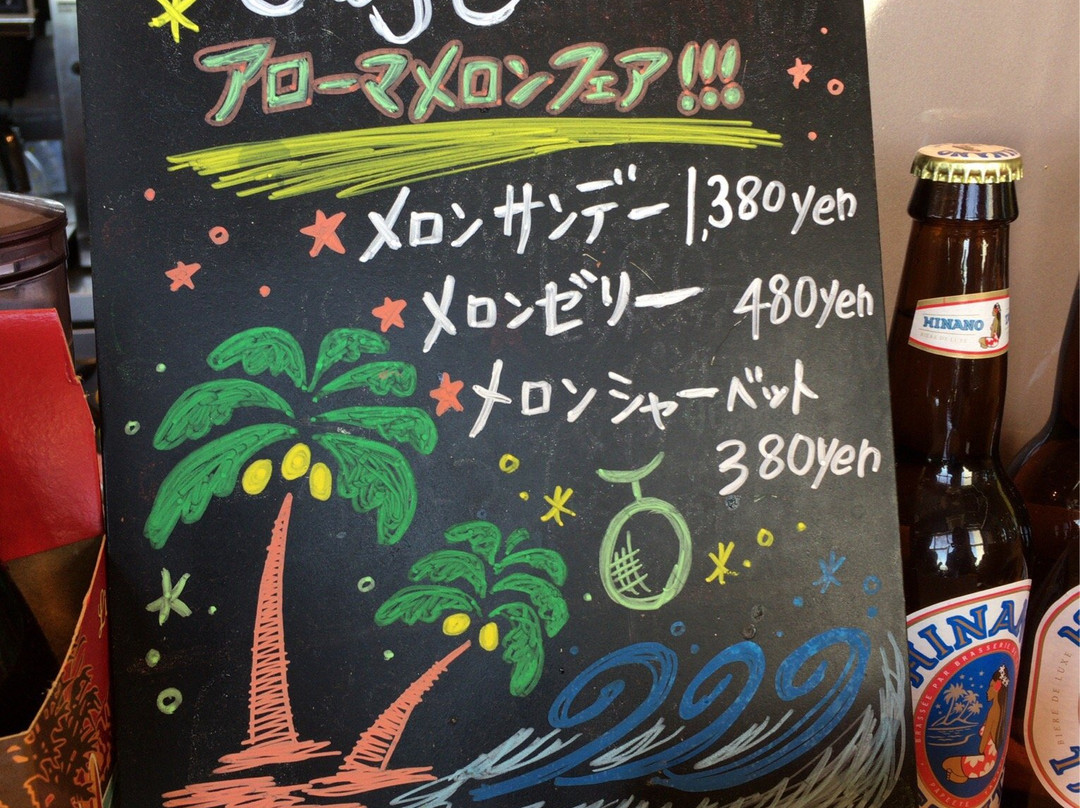 アローマメロンフェア!!!
メロンサンデー 1,380yen
メロンゼリー 480yen
メロンシャーベット
380yen
HINANO
HINAN
BIÈRE DE LUXE